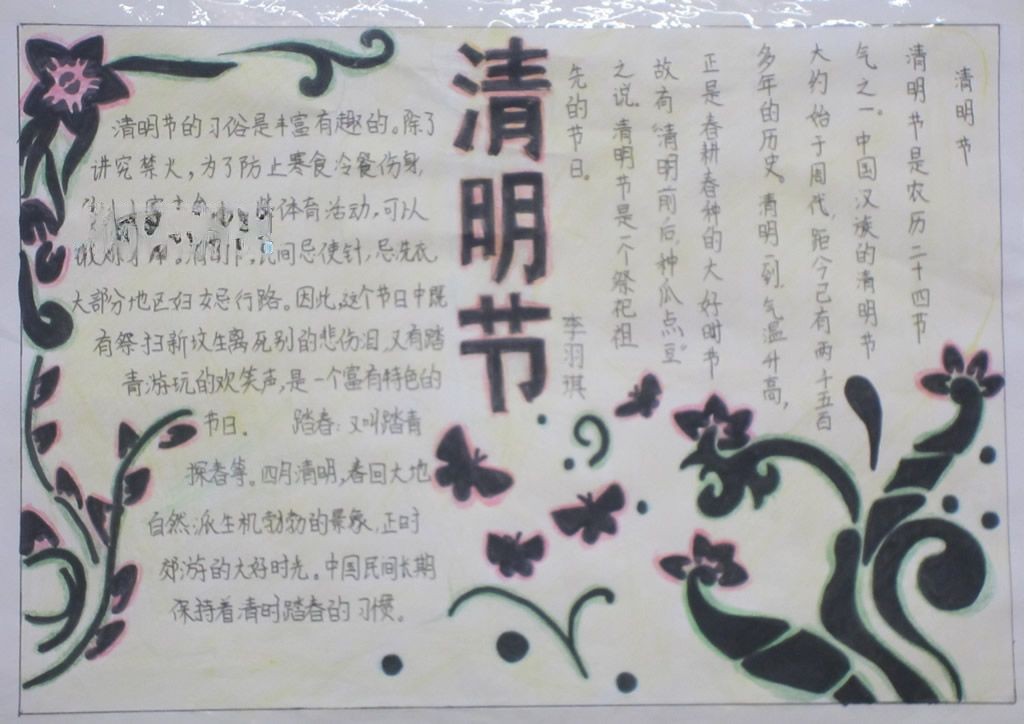 清明节
清明节是农历二十四节
气之一。中国汉族的清明节
大约始于周代，距今已有两千五百
多年的历史。清明一到，气温升高，
正是春耕春种的大好时节
故有“清明前后，种瓜点豆”
之说。清明节是一个祭祀祖
先的节日。
李羽琪
清明节
清明节的习俗是丰富有趣的。除了
讲究禁火，为了防止寒食冷餐伤身，
体育活动，可以
民间忌使针，忌洗衣，
大部分地区妇女忌行路。因此，这个节日中既
有祭扫新坟生离死别的悲伤泪，又有踏
青游玩的欢笑声，是一个富有特色的
节日。 踏春：又叫踏青
探春等。四月清明，春回大地
自然派生机勃勃的景象，正时
郊游的大好时光。中国民间长期
保持着清时踏春的习惯。